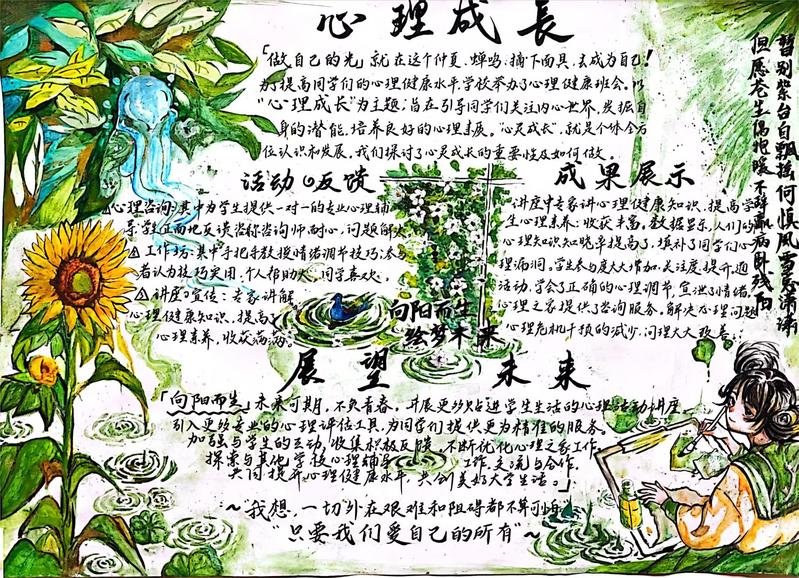 心理成長
「做自己的光」就在这个仲夏、蝉鸣、摘下面具，去成为自己！
为了提高同学们的心理健康水平，学校举办了心理健康班会。以
"心理成长"为主题，旨在引导同学们关注内心世界，发掘自
身的潜能，培养良好的心理素质。"心灵成长"，就是个体全方
位认识和发展，我们探讨了心灵成长的重要性及如何做。
暂别紫台自飘摇何惧风雪愁潇潇
但愿苍生俱饱暖不辞羸病卧残阳
活动反馈
心理咨询：其中为学生提供一对一的专业心理辅
导，学生正面地反馈咨询师耐心，问题解决
工作坊：其中手把手教授情绪调节技巧，参与
者认为技巧实用，个人帮助大，同学喜欢
讲座宣传：专家讲解
心理健康知识，提高了
心理素养，收获满满。
成果展示
讲座中专家讲心理健康知识，提高学
生心理素养；收获丰富，数据显示，人们的
心理知识知晓率提高了，填补了同学们心
理漏洞，学生参与度大大增加，关注度提升，通
活动，学会了正确的心理调节，宣泄了情绪。
心理之家提供了咨询服务，解决心理问题
心理危机干预的减少，问理大大改善。
向阳而生
绘梦未来
展望未来
「向阳而生」未来可期，不负青春，开展更多贴近学生生活的心理活动讲座，
引入更多专业的心理评估工具，为同学们提供更为精准的服务。
加强与学生的互动，收集积极反馈，不断优化心理之家工作，
探索与其他学校心理辅导工作交流与合作，
共同提升心理健康水平，共创美好大学生活。」
～"我想，一切外在艰难和阻碍都不算可惜
只要我们爱自己的所有"～